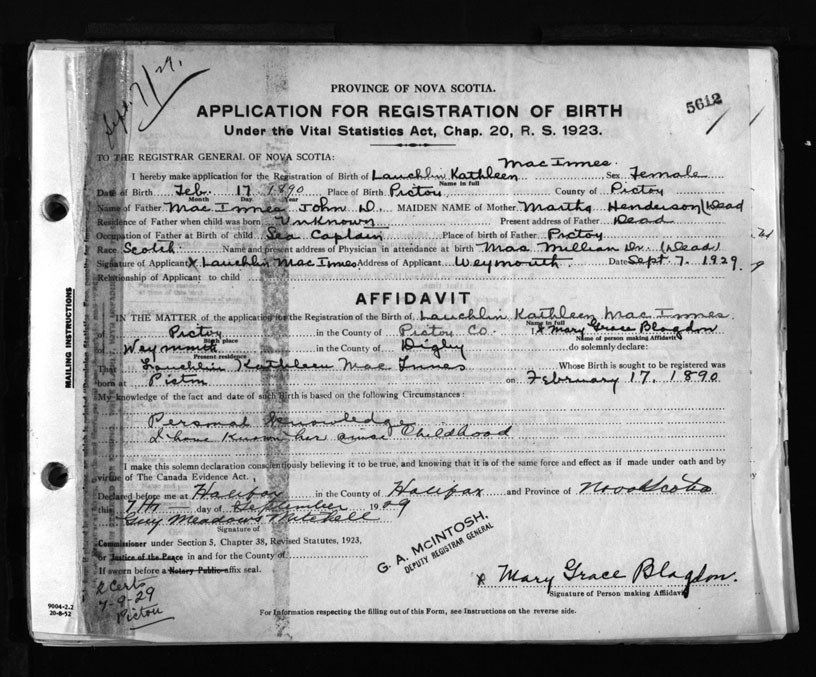 Sept. 7/29.
PROVINCE OF NOVA SCOTIA.
5612
APPLICATION FOR REGISTRATION OF BIRTH
Under the Vital Statistics Act, Chap. 20, R. S. 1923.
TO THE REGISTRAR GENERAL OF NOVA SCOTIA:
I hereby make application for the Registration of Birth of Lauchlin Kathleen Mac Innes. Sex Female
Name in full
Date of Birth Feb. 17 1890 Place of Birth Pictou County of Pictou
Month Day Year
Name of Father Mac Innes John D. MAIDEN NAME of Mother Martha Henderson (Dead
Residence of Father when child was born Unknown Present address of Father Dead
Occupation of Father at Birth of child Sea Captain Place of birth of Father Pictou
Race Scotch Name and present address of Physician in attendance at birth Mac Millian Dr. (Dead)
Signature of Applicant X Lauchlin Mac Innes Address of Applicant Weymouth. Date Sept. 7. 1929.
Relationship of Applicant to child
AFFIDAVIT
IN THE MATTER of the application for the Registration of the Birth of Lauchlin Kathleen Mac Innes.
Name in full
of Pictou in the County of Pictou Co. I X Mary Grace Blagdon
Birth place Name of person making Affidavit
of Weymouth in the County of Digby do solemnly declare:
Present residence
That Lauchlin Kathleen Mac Innes Whose Birth is sought to be registered was
born at Pictou on February 17. 1890
My knowledge of the fact and date of such Birth is based on the following Circumstances:
Personal Knowledge
I have known her since Childhood
I make this solemn declaration conscientiously believing it to be true, and knowing that it is of the same force and effect as if made under oath and by
virtue of The Canada Evidence Act.
Declared before me at Halifax in the County of Halifax and Province of Nova Scotia
this 7th day of September 1929
Guy Meadows Mitchell
Signature of
Commissioner under Section 5, Chapter 38, Revised Statutes, 1923,
or Justice of the Peace in and for the County of
If sworn before a Notary Public affix seal.
G. A. McINTOSH,
DEPUTY REGISTRAR GENERAL
X Mary Grace Blagdon.
Signature of Person making Affidavit
Certs
7-9-29
Pictou
For Information respecting the filling out of this Form, see Instructions on the reverse side.
MAILING INSTRUCTIONS
9004-2.2
20-8-52